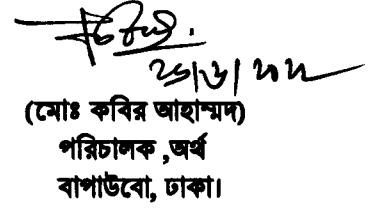 (মোঃ কবির আহাম্মদ)
পরিচালক ,অর্থ
বাপাউবো, ঢাকা।